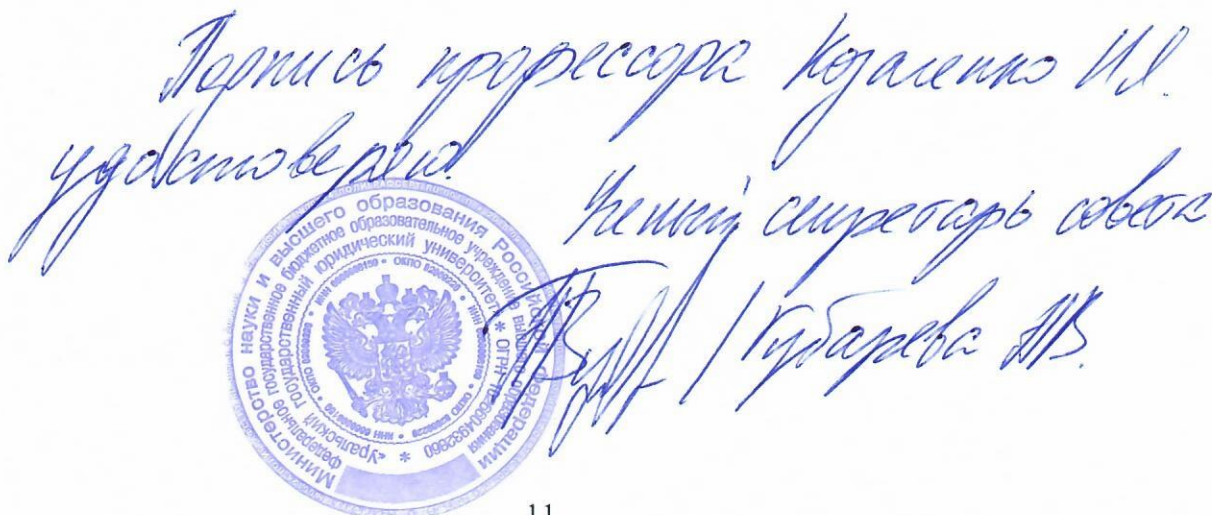 Подпись профессора Козаченко И.Я.
удостоверяю.
Ученый секретарь совета
/ Губарева АВ.
Министерство науки и высшего образования Российской Федерации
федеральное государственное бюджетное образовательное учреждение высшего образования
«Уральский государственный юридический университет» * ОГРН
11